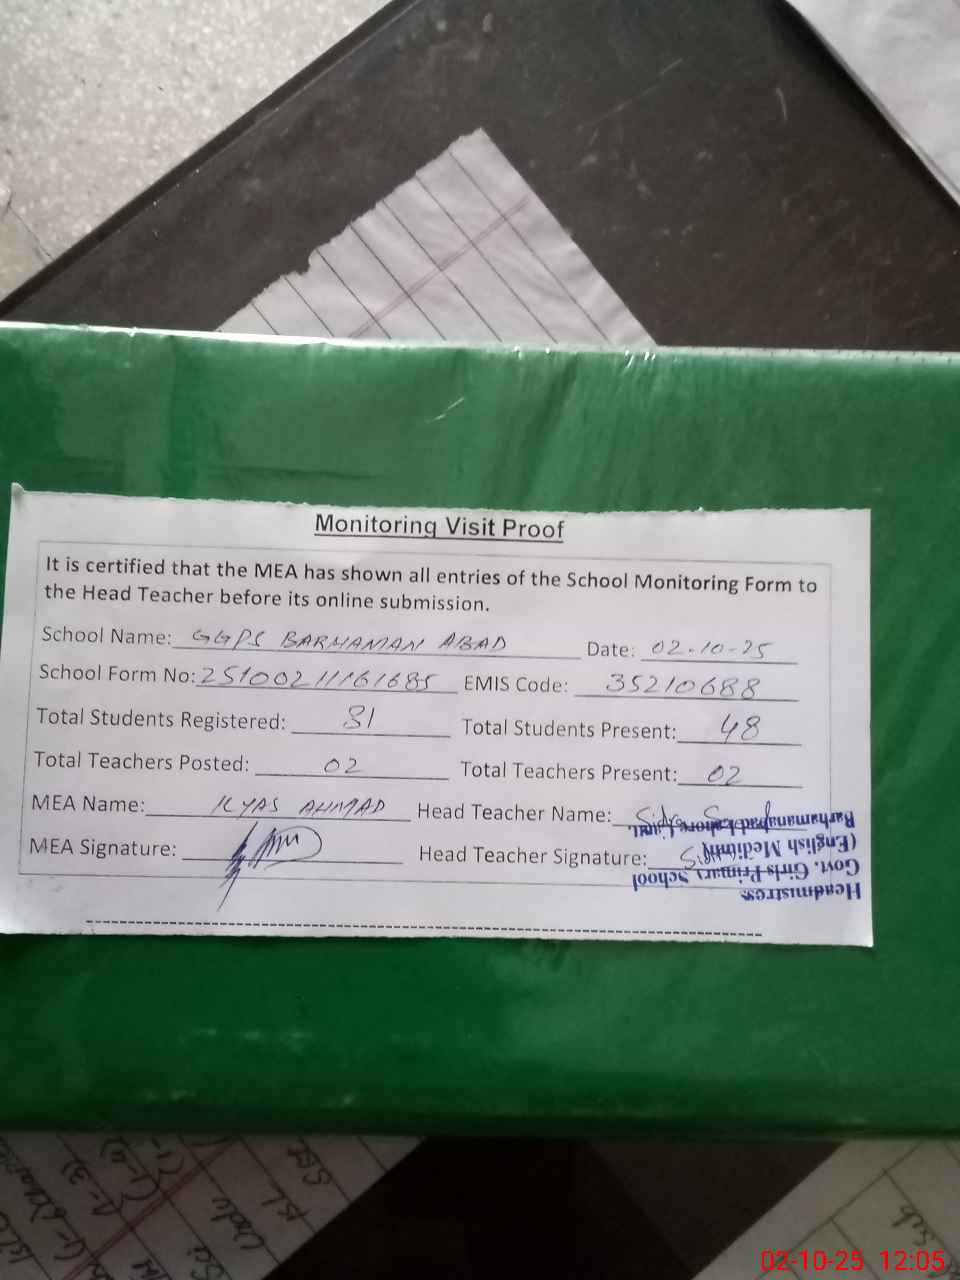 Monitoring Visit Proof
It is certified that the MEA has shown all entries of the School Monitoring Form to
the Head Teacher before its online submission.
School Name: GGPS BARHAMAN ABAD Date: 02-10-25
School Form No: 25100211161685 EMIS Code: 35210688
Total Students Registered: 81 Total Students Present: 48
Total Teachers Posted: 02 Total Teachers Present: 02
MEA Name: ILYAS AHMAD Head Teacher Name:
MEA Signature: Head Teacher Signature:
Headmistress
Govt. Girls Primary School
(English Medium)
Barhamanabad Lahore Cantt.
Urdu
SST
Sub
02-10-25 12:05